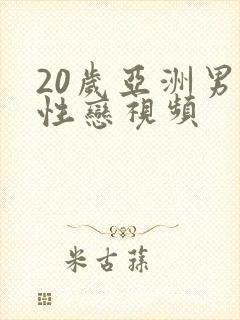 20歲亞洲男
性戀視頻
米古蓀